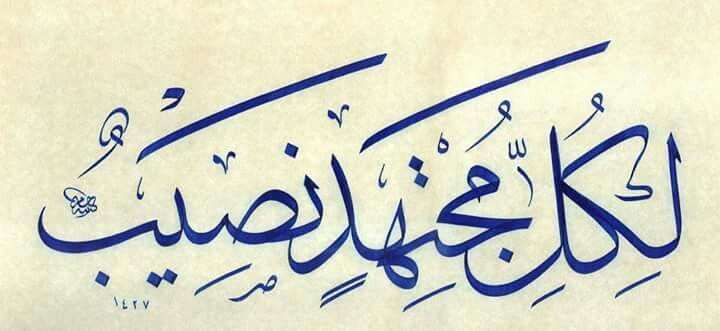 لِكُلِّ مُجْتَهِدٍ نَصِيبٌ
١٤٢٧